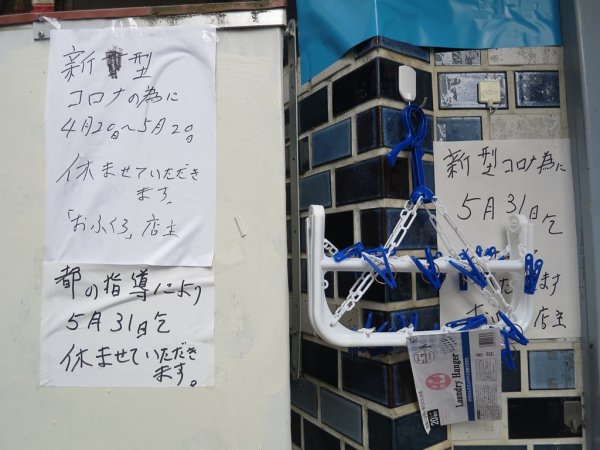 新型
コロナの為に
4月2日〜5月2日
休ませていただき
ます。
「おふくろ」店主
都の指導により
5月31日迄
休ませていただき
ます。
新型コロナ為に
5月31日迄
ます
店主
Laundry Hanger